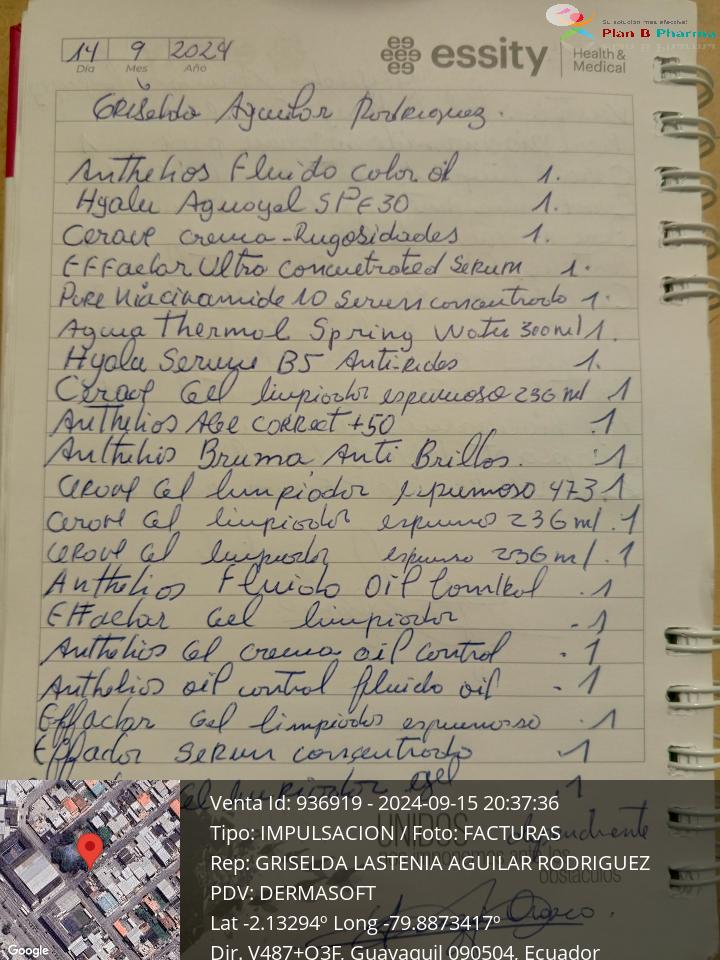 Su solución más efectiva!
Plan B Pharma
14 9 2024
Día Mes Año
essity Health & Medical
Griselda Aguilar Rodriguez.
Anthelios Fluido color oil 1.
Hyalu Aguagel SPF30 1.
Cerave crema-Rugosidades 1.
Effaclar Ultra Concuetrated Serum 1.
Pure Niacinamide 10 Serum concentrado 1.
Agua Thermal Spring Water 300ml 1.
Hyalu Serum B5 Anti-rides 1.
Cerave Gel limpiador espumoso 236 ml 1
Anthelios Age correct +50 .1
Anthelios Bruma Anti Brillos. 1
Cerave Gel limpiador espumoso 473.1
Cerave Gel limpiador espumo 236 ml .1
Cerave Gel limpiador espumo 236 ml .1
Anthelios Fluido Oil Control .1
Effaclar Gel limpiador .1
Anthelios Gel crema oil control .1
Anthelios oil control fluido oil .1
Effaclar Gel limpiador espumosso .1
Effaclar Serum concentrado .1
Gel limpiador .1
UNIDOS
obstáculos
Venta Id: 936919 - 2024-09-15 20:37:36
Tipo: IMPULSACION / Foto: FACTURAS
Rep: GRISELDA LASTENIA AGUILAR RODRIGUEZ
PDV: DERMASOFT
Lat -2.13294º Long -79.8873417º
Dir. V487+Q3F, Guayaquil 090504, Ecuador
Google